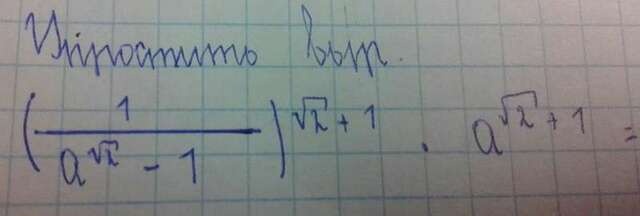 Упростить выр.
(1/(a^√2 - 1))^√2 + 1 · a^√2 + 1 =